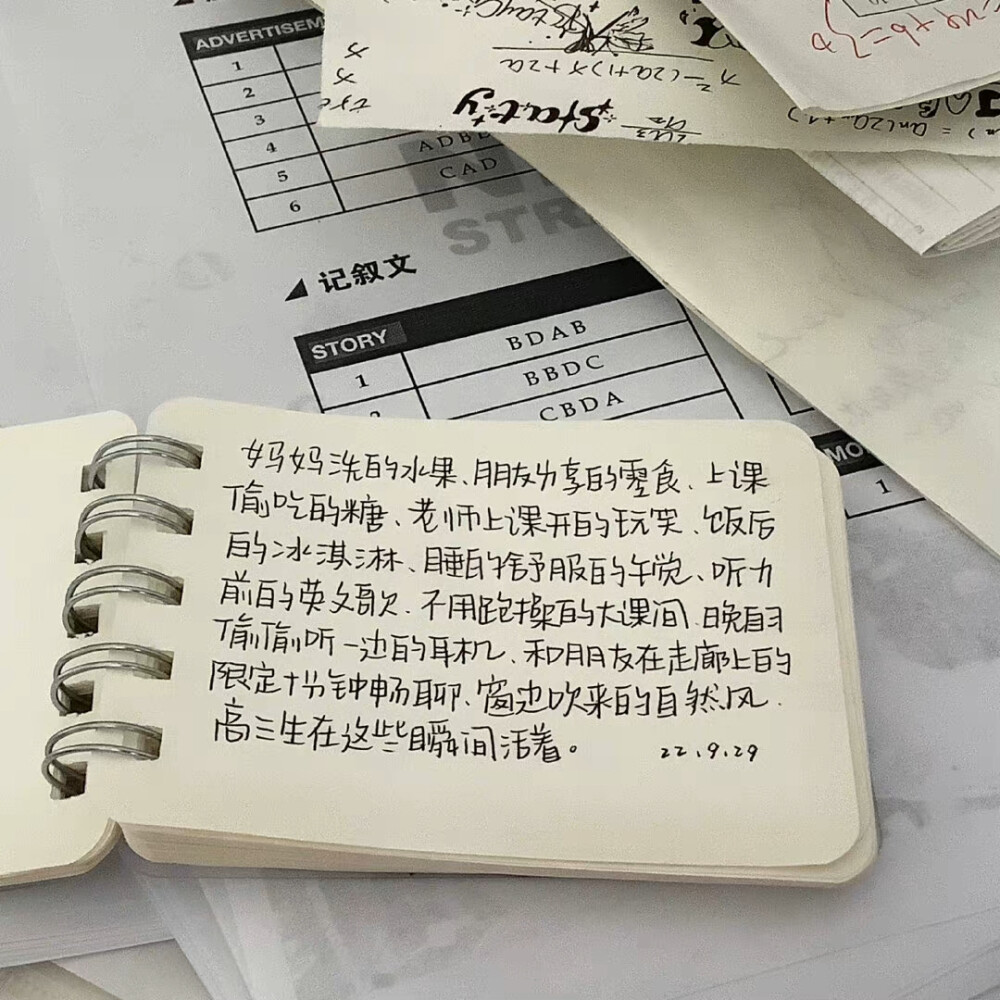 ADVERTISEM
1
2
3
4
5
CAD
6
STR
◢ 记叙文
STORY
BDAB
1
BBDC
CBDA
MO
1
x²-(2a+1)x+2a
妈妈洗的水果、朋友分享的零食、上课
偷吃的糖、老师上课开的玩笑、饭后
的冰淇淋、睡的舒服的午觉、听力
前的英文歌、不用跑操的大课间、晚自习
偷偷听一边的耳机、和朋友在走廊上的
限定十分钟畅聊、窗边吹来的自然风.
高三生在这些瞬间活着。
22.9.29